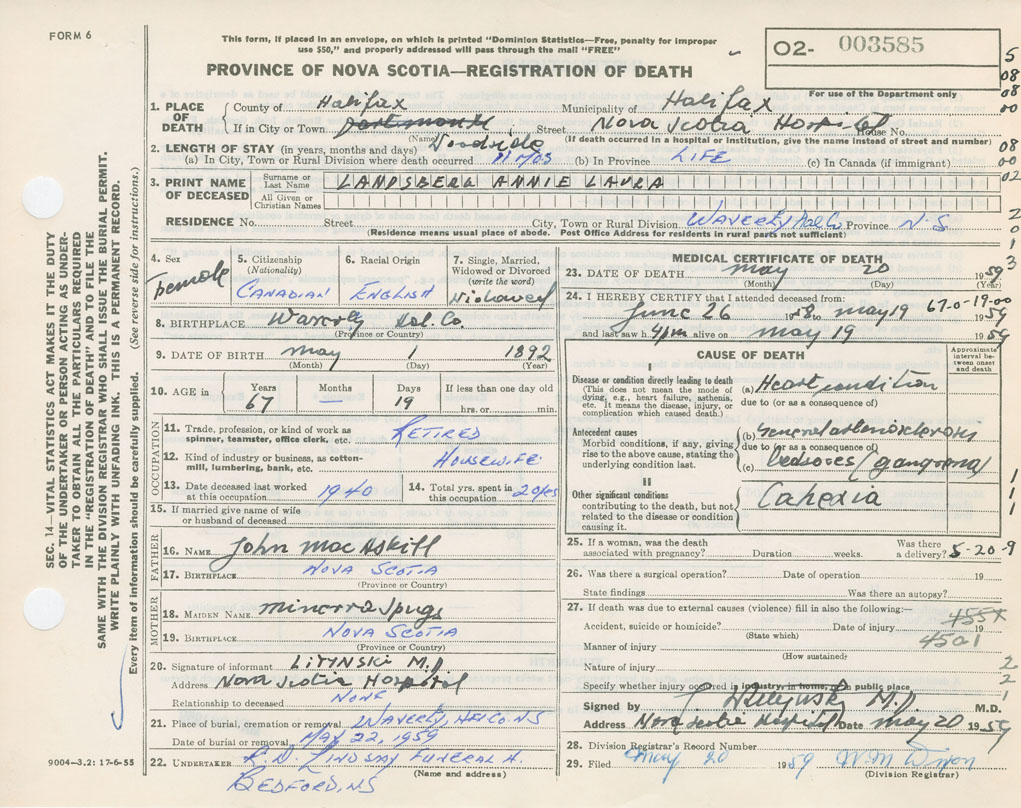 FORM 6
This form, if placed in an envelope, on which is printed "Dominion Statistics—Free, penalty for improper
use $50," and properly addressed will pass through the mail "FREE"
O2- 003585
For use of the Department only
PROVINCE OF NOVA SCOTIA—REGISTRATION OF DEATH
SEC. 14—VITAL STATISTICS ACT MAKES IT THE DUTY
OF THE UNDERTAKER OR PERSON ACTING AS UNDER-
TAKER TO OBTAIN ALL THE PARTICULARS REQUIRED
IN THE "REGISTRATION OF DEATH" AND TO FILE THE
SAME WITH THE DIVISION REGISTRAR WHO SHALL ISSUE THE BURIAL PERMIT.
WRITE PLAINLY WITH UNFADING INK. THIS IS A PERMANENT RECORD.
Every item of information should be carefully supplied. (See reverse side for instructions.)
1. PLACE OF DEATH
County of Halifax Municipality of Halifax
If in City or Town Dartmouth Street Nova Scotia Hospital House No.
(Name) (If death occurred in a hospital or institution, give the name instead of street and number)
Woodside
2. LENGTH OF STAY (in years, months and days)
(a) In City, Town or Rural Division where death occurred 11 mos (b) In Province LIFE (c) In Canada (if immigrant)
3. PRINT NAME OF DECEASED
Surname or Last Name LANDSBERG ANNIE LAURA
All Given or Christian Names
RESIDENCE No. Street City, Town or Rural Division Waverly Hal. Co. Province N-S
(Residence means usual place of abode. Post Office Address for residents in rural parts not sufficient)
5
08
08
00
08
00
02
2
0
1
3
4. Sex
Female
5. Citizenship
(Nationality)
CANADIAN
6. Racial Origin
ENGLISH
7. Single, Married,
Widowed or Divorced
(write the word)
Widowed
8. BIRTHPLACE Waverly Hal. Co.
(Province or Country)
9. DATE OF BIRTH May 1 1892
(Month) (Day) (Year)
10. AGE in
Years Months Days If less than one day old
67 — 19 hrs. or min.
OCCUPATION
11. Trade, profession, or kind of work as
spinner, teamster, office clerk, etc. RETIRED
12. Kind of industry or business, as cotton-
mill, lumbering, bank, etc. HOUSEWIFE
13. Date deceased last worked
at this occupation 1940
14. Total yrs. spent in
this occupation
15. If married give name of wife
or husband of deceased
FATHER
16. NAME John MacAskill
17. BIRTHPLACE NOVA SCOTIA
(Province or Country)
MOTHER
18. MAIDEN NAME
19. BIRTHPLACE NOVA SCOTIA
(Province or Country)
20. Signature of informant LITYNSKI M.D.
Address Nova Scotia Hospital
Relationship to deceased NONE
21. Place of burial, cremation or removal WAVERLY, HFX CO. NS
Date of burial or removal MAY 22, 1959
22. UNDERTAKER LINDSAY FUNERAL H.
(Name and address)
BEDFORD, NS
9004—3.2: 17-6-55
MEDICAL CERTIFICATE OF DEATH
23. DATE OF DEATH May 20 1959
(Month) (Day)
24. I HEREBY CERTIFY that I attended deceased from:
67-0-19-00
June 26 1958 to May 19 1959
and last saw h 4 pm alive on May 19 1959
CAUSE OF DEATH
Approximate
interval be-
tween onset
and death
I
Disease or condition directly leading to death
(This does not mean the mode of
dying, e.g., heart failure, asthenia,
etc. It means the disease, injury, or
complication which caused death.)
(a) Heart condition
due to (or as a consequence of)
Antecedent causes
Morbid conditions, if any, giving
rise to the above cause, stating the
underlying condition last.
(b) General arteriosclerosis
due to (or as a consequence of)
(c) bedsores (gangrena)
II
Other significant conditions
contributing to the death, but not
related to the disease or condition
causing it.
Cahexia
1
1
1
25. If a woman, was the death
associated with pregnancy? Duration weeks. Was there
a delivery? 5-20-9
26. Was there a surgical operation? Date of operation 19
State findings Was there an autopsy?
27. If death was due to external causes (violence) fill in also the following:—
Accident, suicide or homicide? Date of injury 19
(State which)
455X
4501
Manner of injury
(How sustained)
Nature of injury
Specify whether injury occurred in industry, in home, in public place
2
2
1
Signed by M.D.
Address Nova Scotia Hospital Date May 20 1959
28. Division Registrar's Record Number
29. Filed May 20 1959
(Division Registrar)